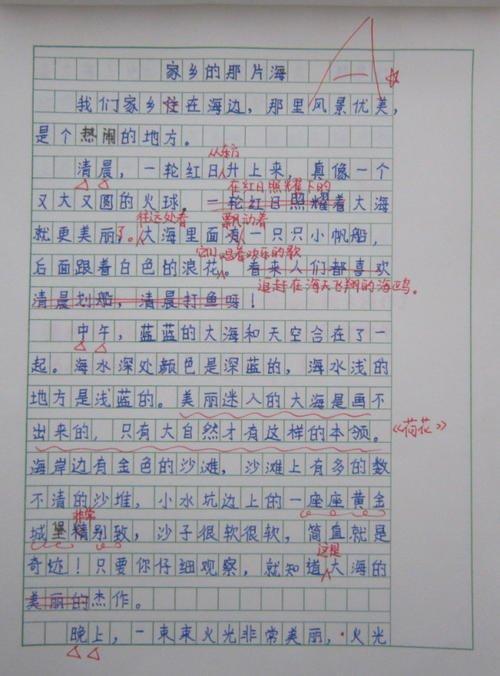 家乡的那片海
我们家乡住在海边，那里风景优美，
是个热闹的地方。
从东方
清晨，一轮红日升上来，真像一个
在红日照耀下的
又大又圆的火球。一轮红日照耀着大海
往远处看 飘动着
就更美丽了。大海里面有一只只小帆船，
它们唱着欢乐的歌
后面跟着白色的浪花。看来人们都喜欢
追赶在海天飞翔的海鸥。
清晨划船，清晨打鱼吗！
中午，蓝蓝的大海和天空合在了一
起。海水深处颜色是深蓝的，海水浅的
地方是浅蓝的。美丽迷人的大海是画不
出来的，只有大自然才有这样的本领。《荷花》
海岸边有金色的沙滩，沙滩上有多的数
不清的沙堆，小水坑边上的一座座黄金
非常
城堡精别致，沙子很软很软，简直就是
这是
奇迹！只要你仔细观察，就知道大海的
美丽的杰作。
晚上，一束束火光非常美丽，火光